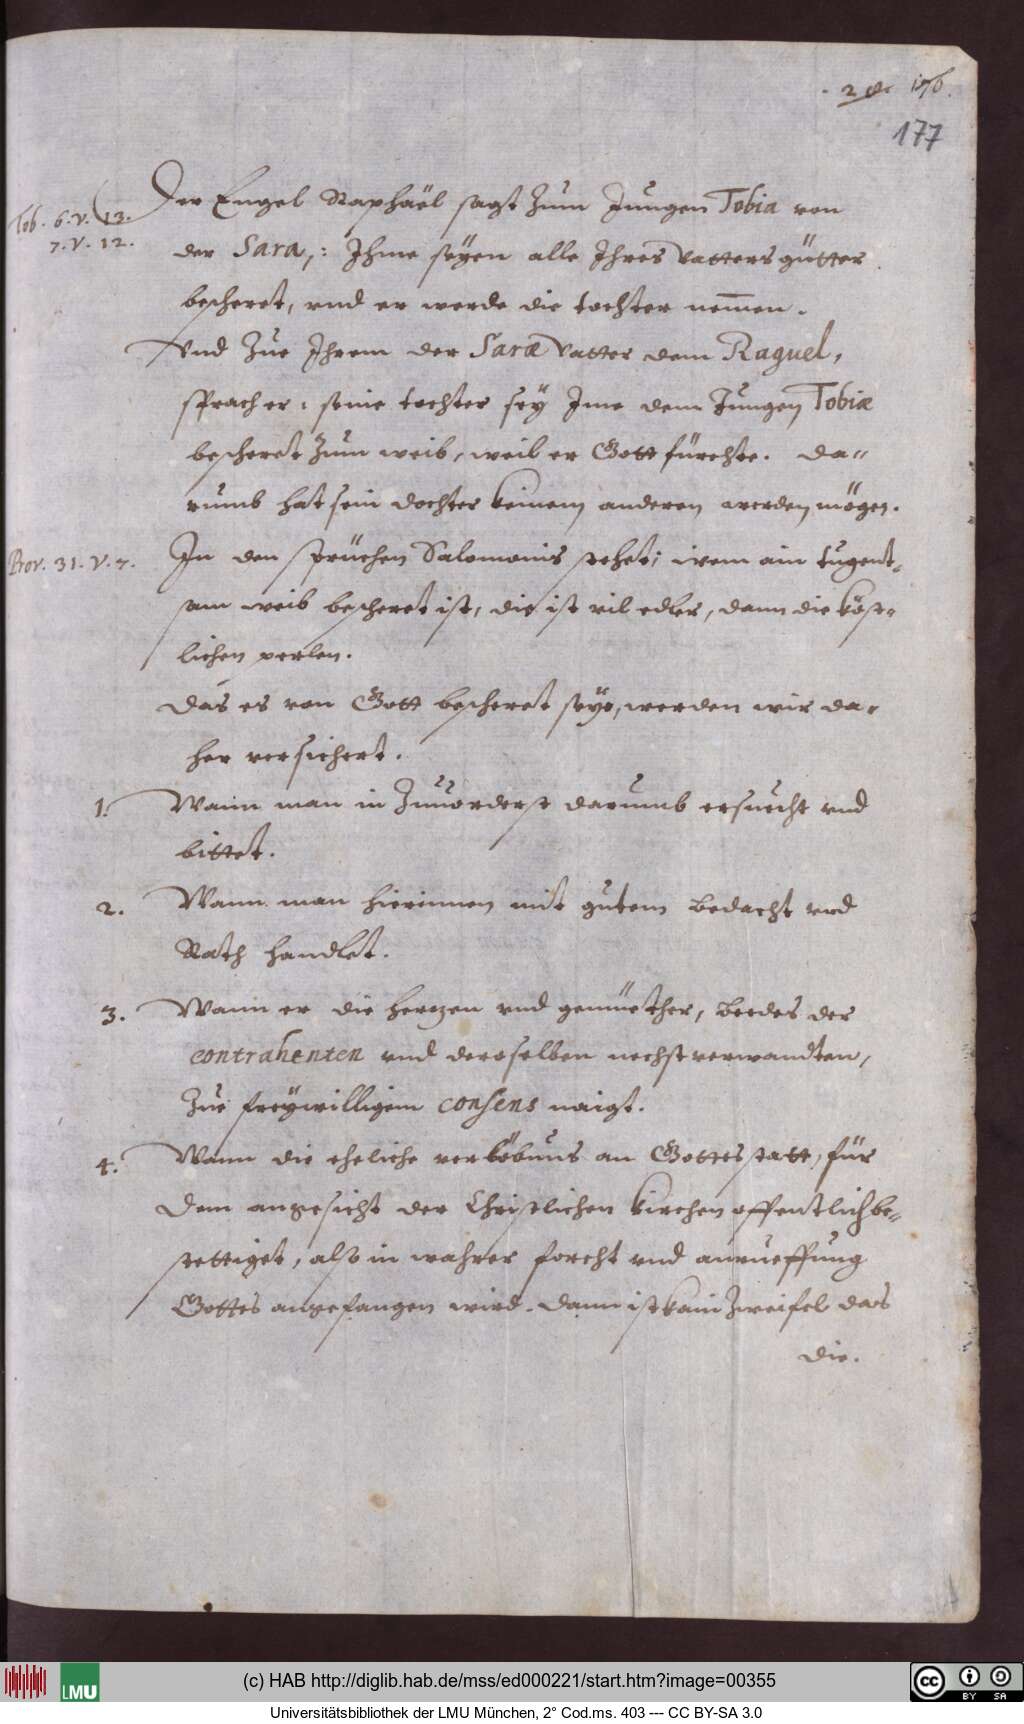 176.
177
Tob. 6. v. 13.
7. v. 12.
Der Engel Raphaël sagt zum Jungen Tobia von
der Sara,: Ihme seyen alle Ihres Vatters gütter
bescheret, vnd er werde die tochter nemmen.
Vnd zue Ihrem der Saræ Vatter dem Raguel,
sprach er: seine tochter sey Ime dem Jungen Tobiæ
bescheret zum weib, weil er Gott fürchte. Da=
rumb hat sein dochter keinem anderen werden mögen.
Prov. 31. v. 7.
In den sprüchen Salomonis stehet; wem ain tugent=
sam weib bescheret ist, die ist vil edler, dann die köst=
lichen perlen.
Das es von Gott bescheret seye, werden wir da=
her versichert.
1. Wann man in Zuuorderst darumb ersuecht vnd
bittet.
2. Wann man hierinnen mit gutem bedacht vnd
Rath handlet.
3. Wann er die hertzen vnd gemüether, beedes der
contrahenten vnd derselben nechst verwandten,
zue freywilligem consens naigt.
4. Wann die eheliche verlöbnus an Gottes statt, für
dem angesicht der Christlichen kirchen offentlich be=
stettiget, also in wahrer forcht vnd anrueffung
Gottes angefangen wird. Dann ist kain zweifel das
die.
LMU
(c) HAB http://diglib.hab.de/mss/ed000221/start.htm?image=00355
Universitätsbibliothek der LMU München, 2° Cod.ms. 403 --- CC BY-SA 3.0
cc
BY SA